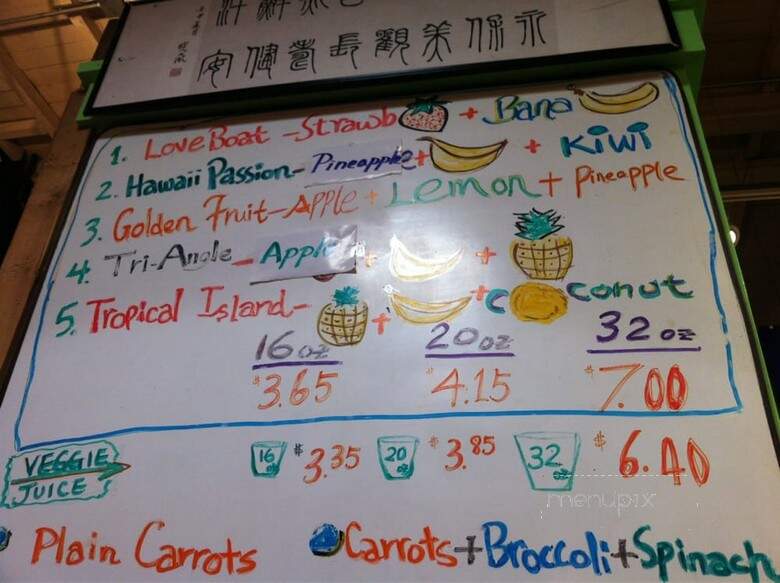 永保美觀長壽健安
1. Love Boat - Strawb + Bana
2. Hawaii Passion - Pineapple + + Kiwi
3. Golden Fruit - Apple + Lemon + Pineapple
4. Tri-Angle - Apple + +
5. Tropical Island - + + Coconut
16 oz 20 oz 32 oz
$3.65 $4.15 $7.00
VEGGIE JUICE 16 oz $3.35 20 oz $3.85 32 oz $6.40
menupix
Plain Carrots Carrots + Broccoli + Spinach